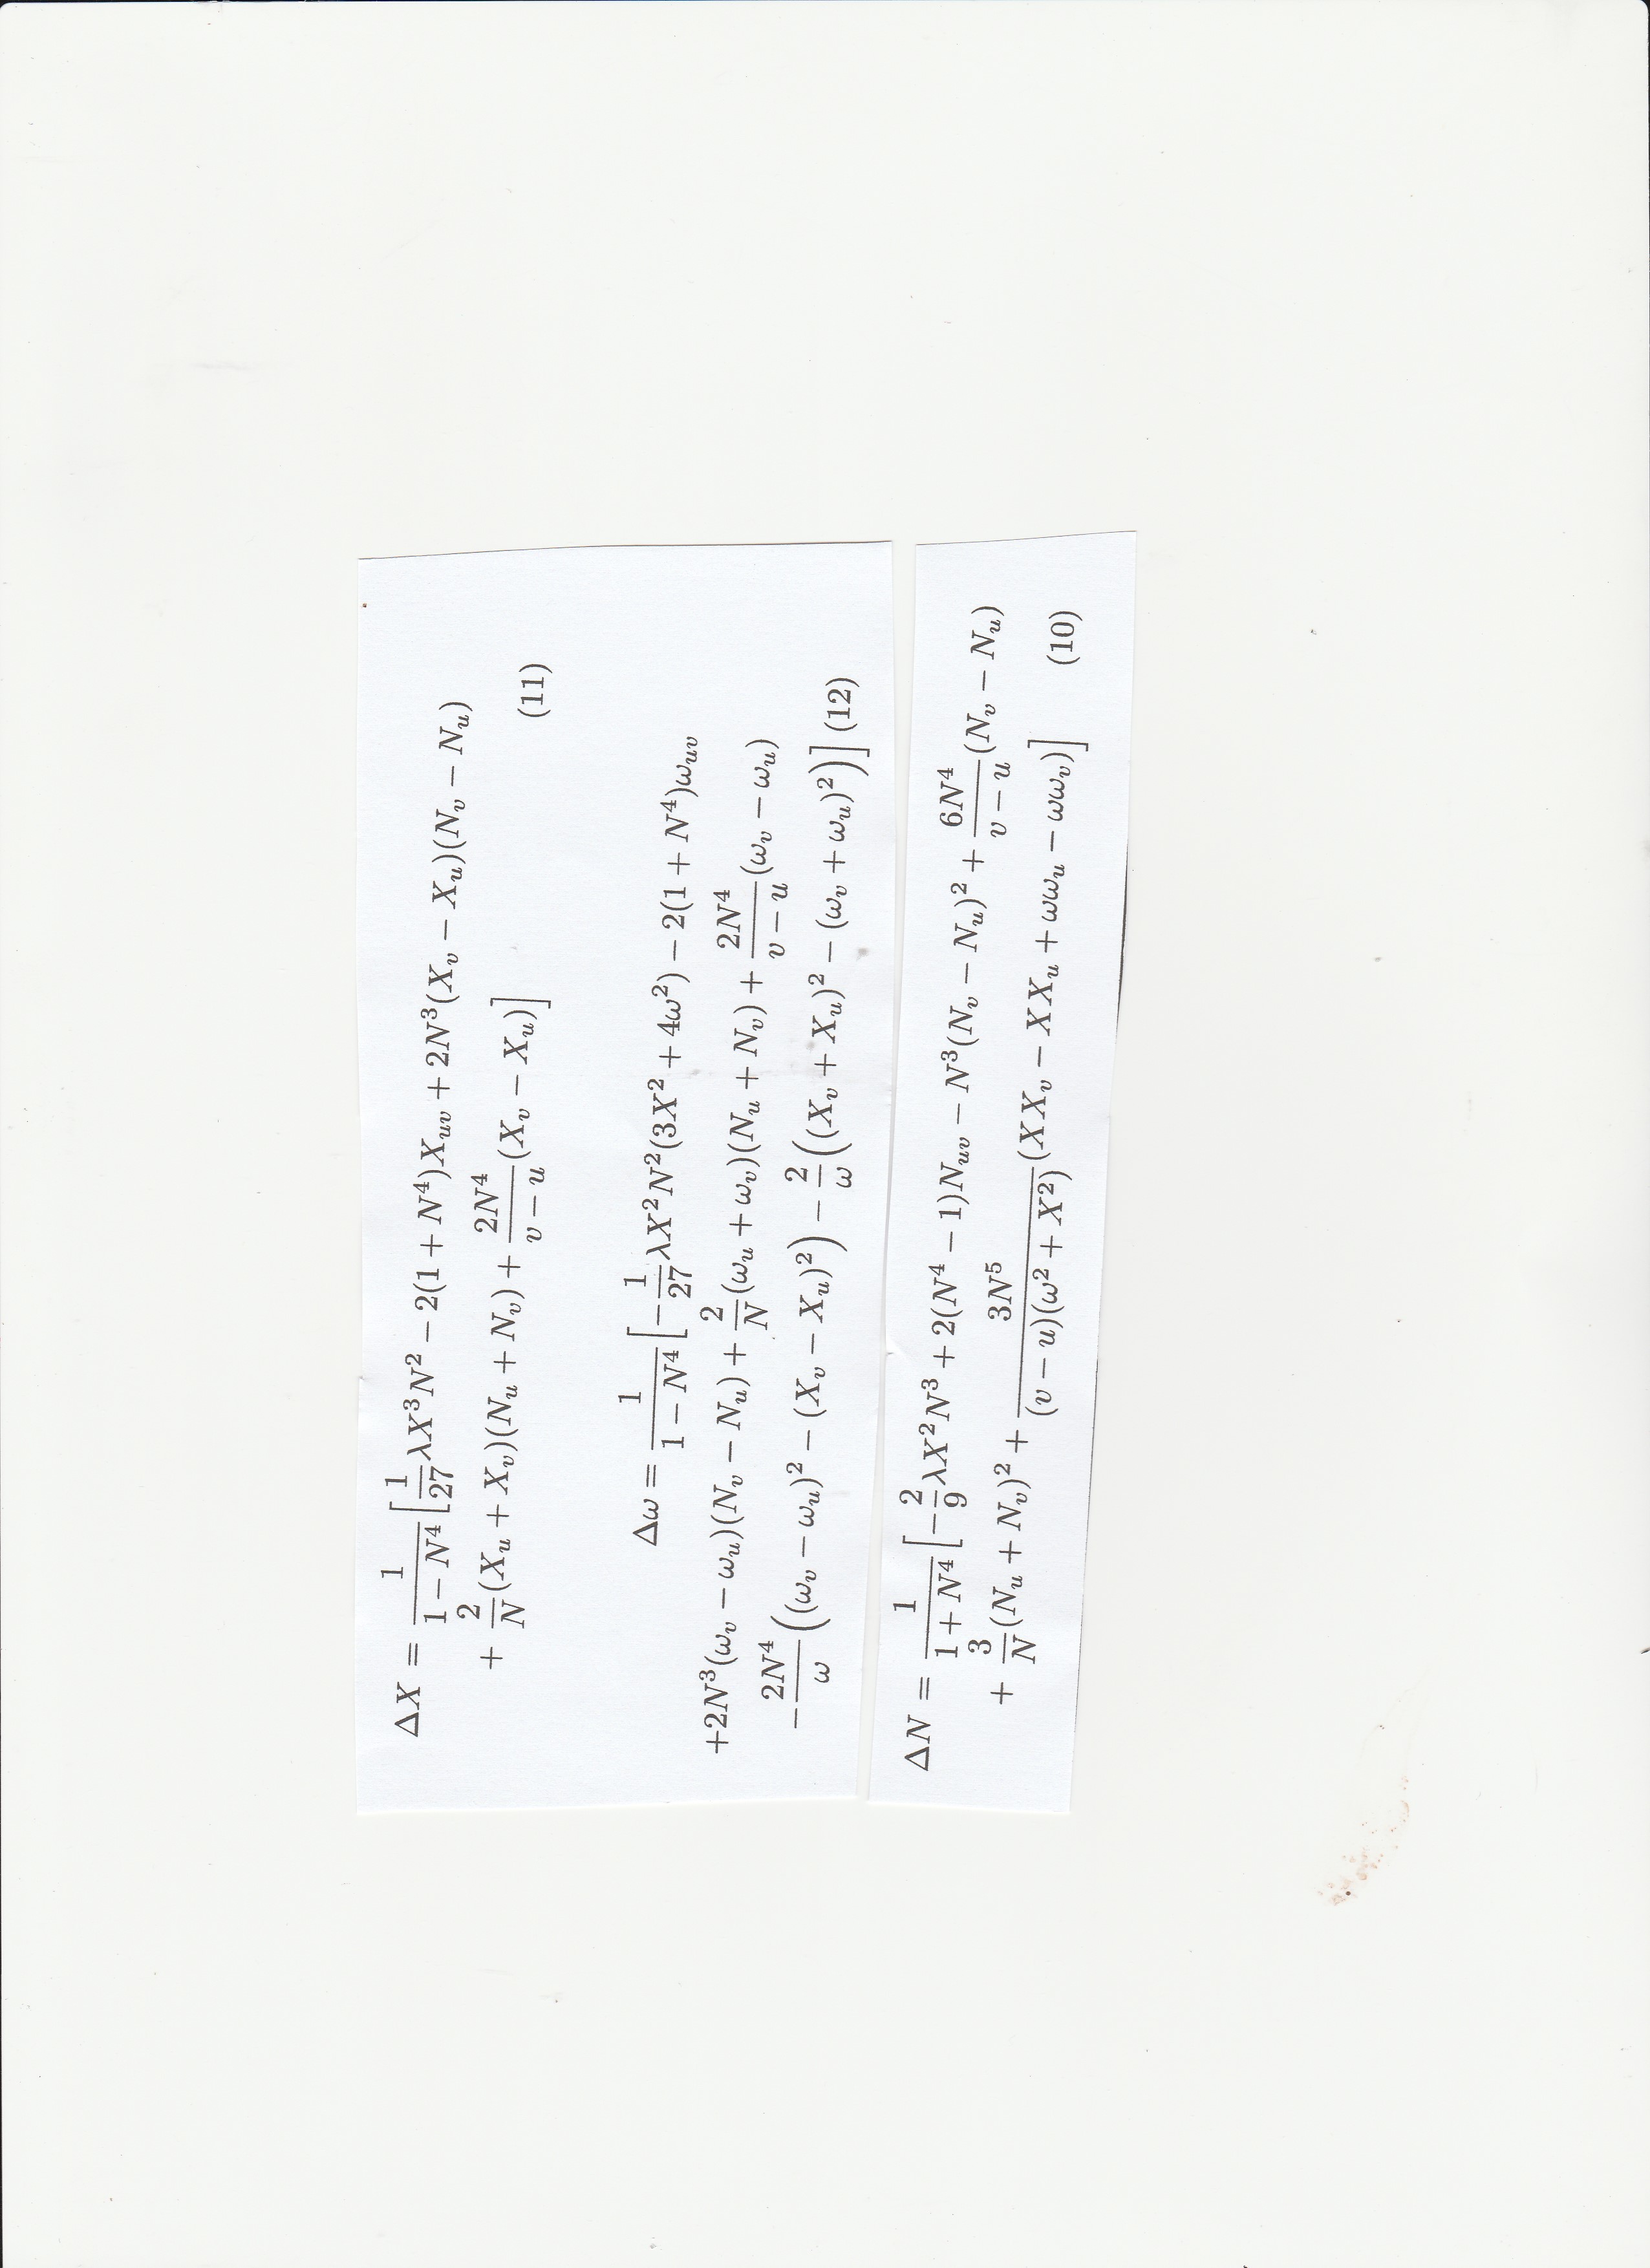 ΔX = \frac{1}{1 - N^4}[\frac{1}{27}λX^3N^2 - 2(1 + N^4)X_{uv} + 2N^3(X_v - X_u)(N_v - N_u)
+ \frac{2}{N}(X_u + X_v)(N_u + N_v) + \frac{2N^4}{v - u}(X_v - X_u)]
(11)
Δω = \frac{1}{1 - N^4}[-\frac{1}{27}λX^2N^2(3X^2 + 4ω^2) - 2(1 + N^4)ω_{uv}
+2N^3(ω_v - ω_u)(N_v - N_u) + \frac{2}{N}(ω_u + ω_v)(N_u + N_v) + \frac{2N^4}{v - u}(ω_v - ω_u)
-\frac{2N^4}{ω}((ω_v - ω_u)^2 - (X_v - X_u)^2) - \frac{2}{ω}((X_v + X_u)^2 - (ω_v + ω_u)^2)] (12)
ΔN = \frac{1}{1 + N^4}[-\frac{2}{9}λX^2N^3 + 2(N^4 - 1)N_{uv} - N^3(N_v - N_u)^2 + \frac{6N^4}{v - u}(N_v - N_u)
+ \frac{3}{N}(N_u + N_v)^2 + \frac{3N^5}{(v - u)(ω^2 + X^2)}(XX_v - XX_u + ωω_u - ωω_v)]
(10)